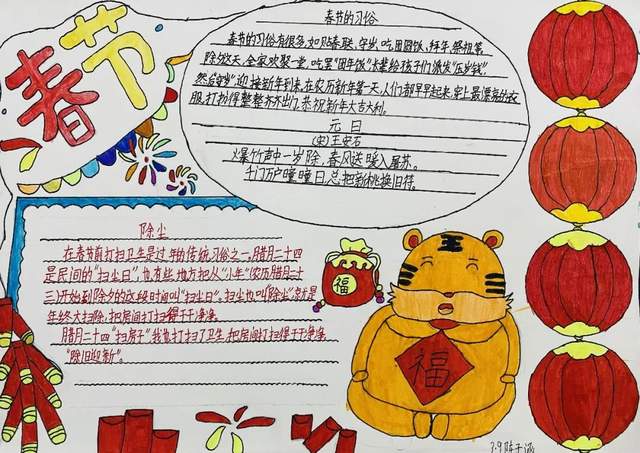 春节
春节的习俗
春节的习俗有很多,如贴春联,守岁,吃团圆饭,拜年,祭祖等。
除夕这天,全家欢聚一堂,吃罢"团年饭"长辈给孩子们派发"压岁钱",
然后守岁,迎接新年到来,在农历新年第一天,人们都早早起来,穿上最漂亮的衣
服,打扮得整整齐齐出门,恭祝新年大吉大利。
元日
(宋)王安石
爆竹声中一岁除,春风送暖入屠苏。
千门万户曈曈日,总把新桃换旧符。
除尘
在春节前打扫卫生是过年的传统习俗之一,腊月二十四
是民间的"扫尘日",也有些地方把从"小年"(农历腊月二十
三)开始到除夕的这段时间叫"扫尘日"。扫尘也叫"除尘",就是
年终大扫除,把房间打扫得干干净净。
腊月二十四"扫房子"我也打扫了卫生,把房间打扫得干干净净,
"除旧迎新"。
福
王
福
3.9 陈子涵